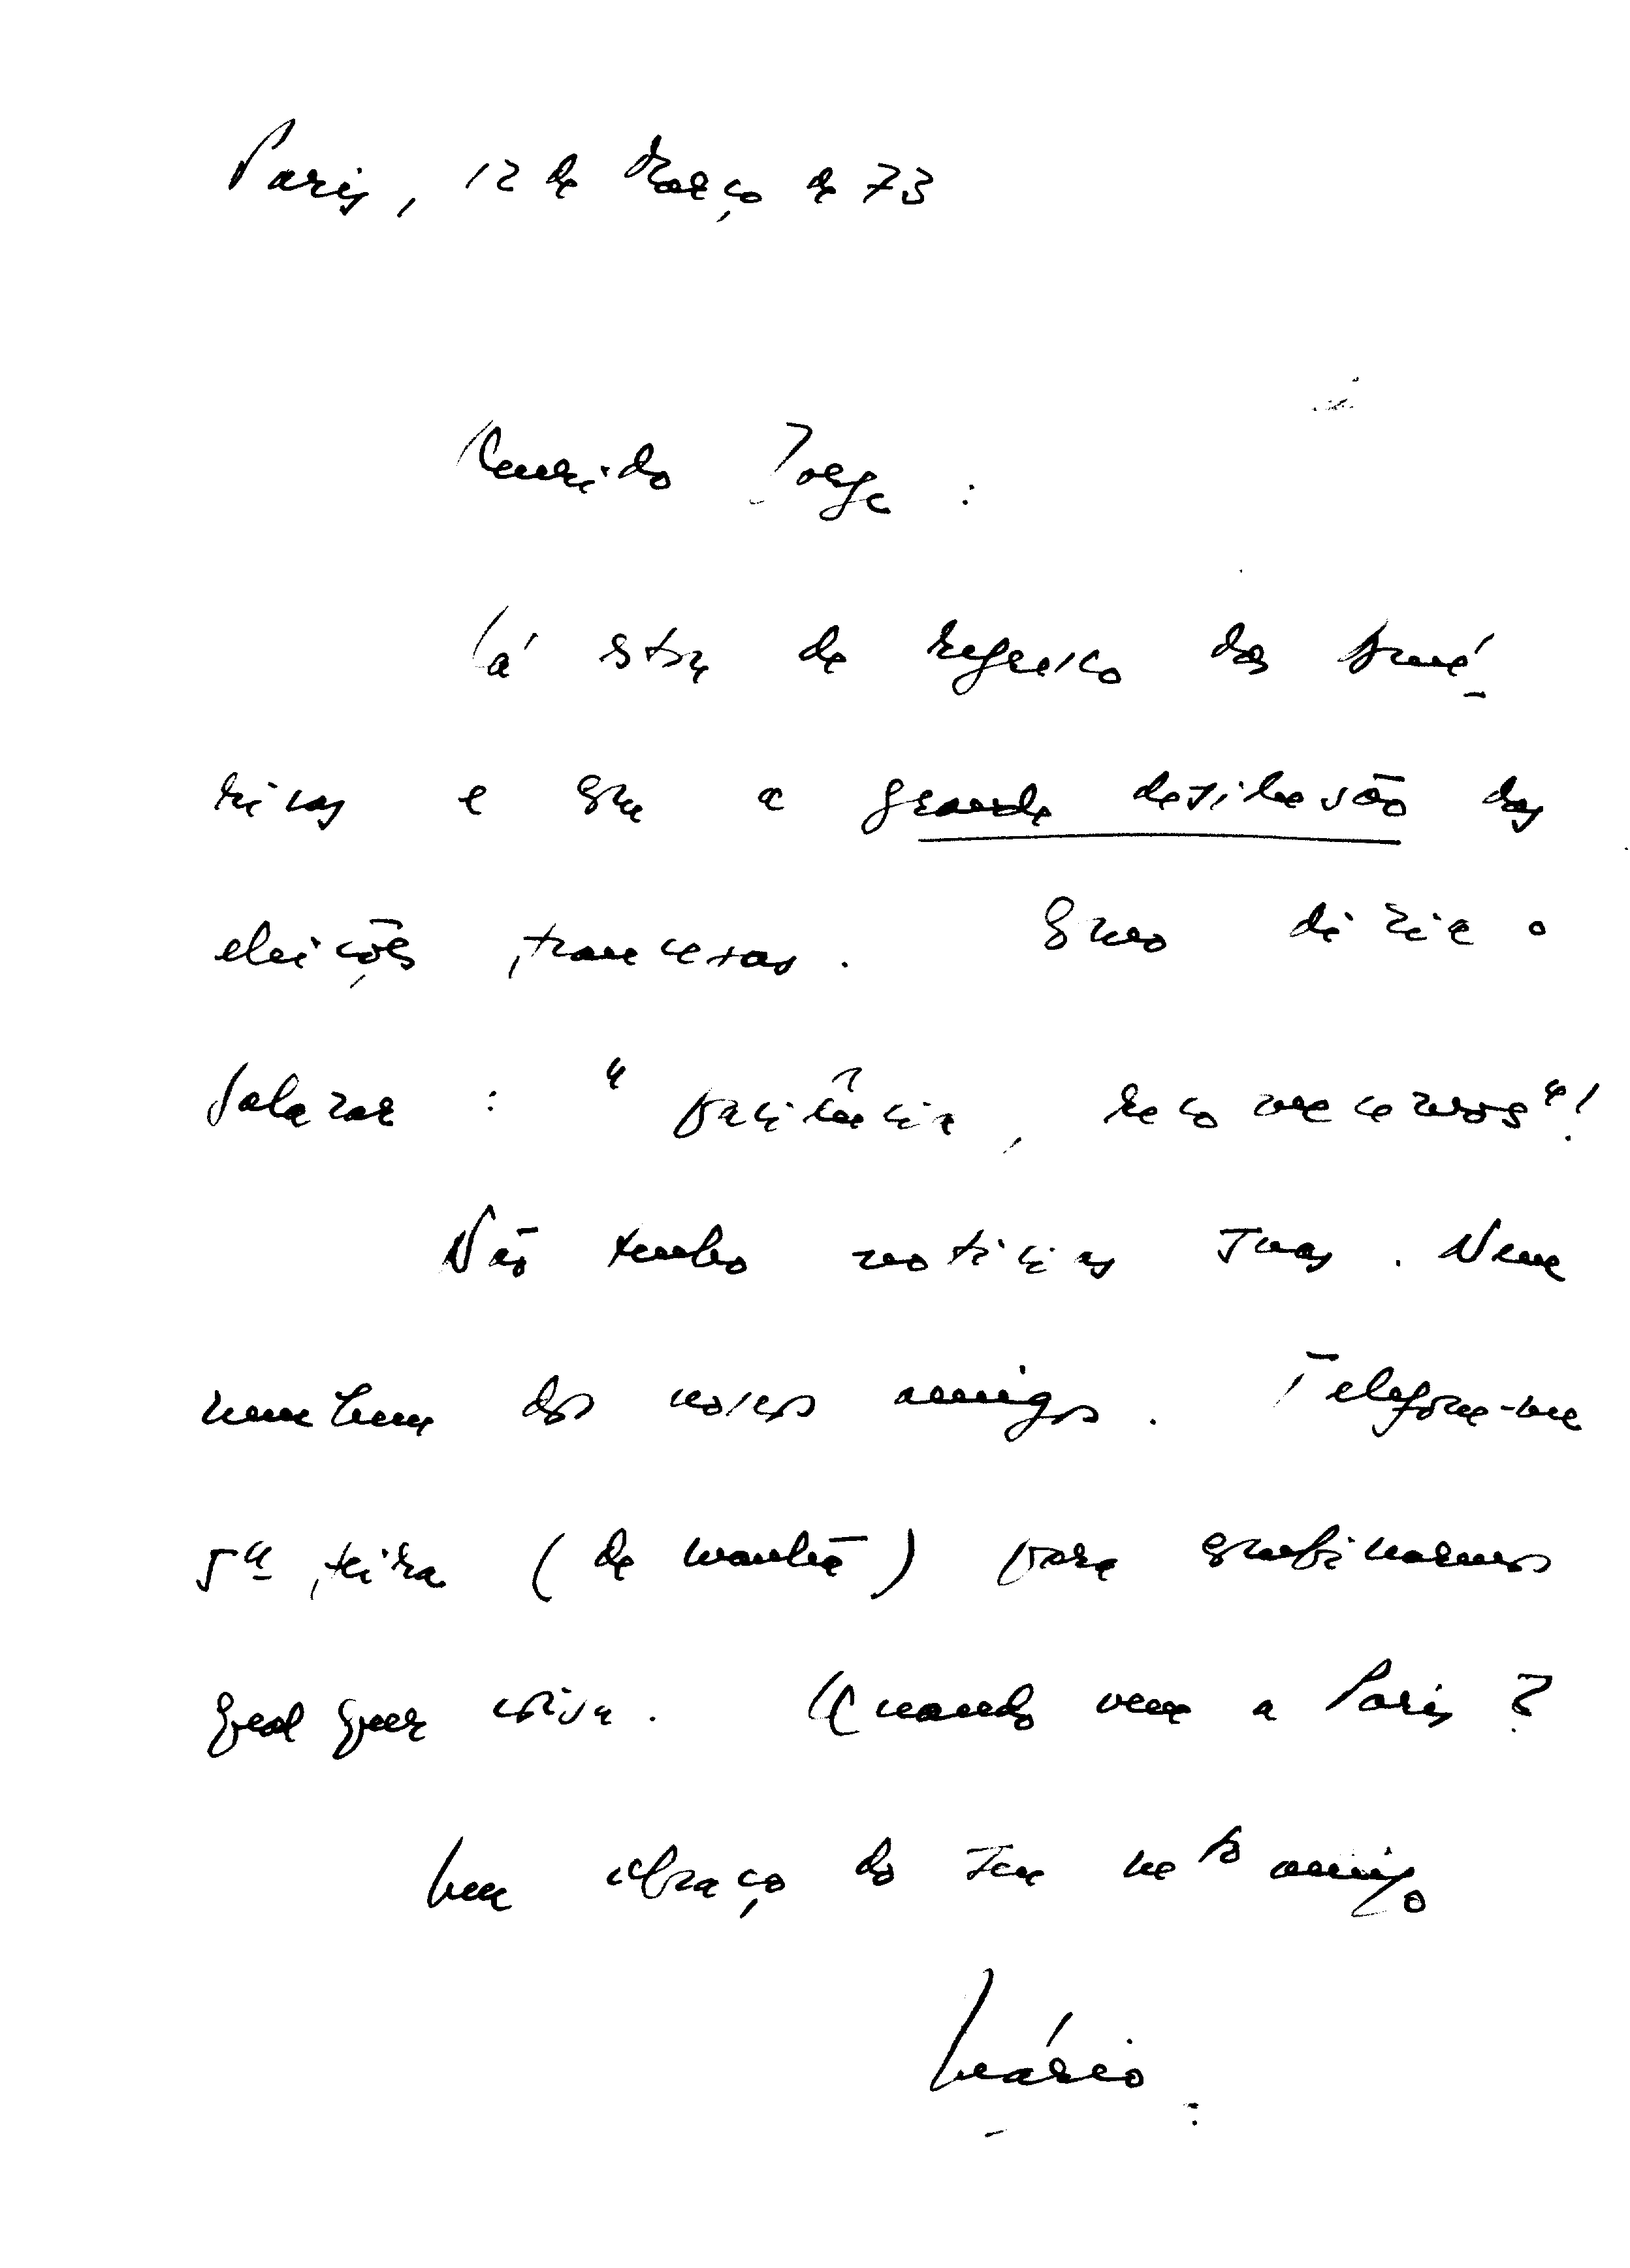 Paris, 12 de Março de 73
Querido Jorge :
Cá estou de regresso das Amé-
ricas e com a grande desilusão das
eleições francesas. Como dizia o
Salazar : "paciência, recomecemos"!
Não tenho notícias tuas. Nem
nenhum dos nossos amigos. Telefone-me
5ª feira (de manhã) para combinarmos
qualquer coisa. Quando vem a Paris ?
Um abraço do teu mto amigo
Mário